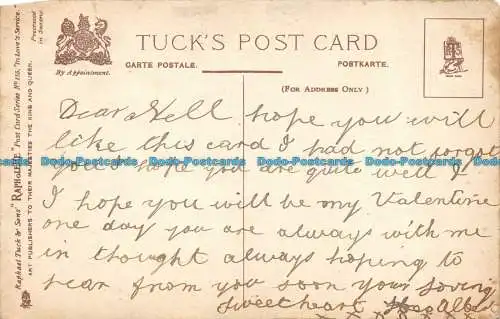 TUCK'S POST CARD
By Appointment.
CARTE POSTALE.
POSTKARTE.
(FOR ADDRESS ONLY)
Raphael Tuck & Sons' "RAPHOLETTE" Post Card Series No 115, "In Love's Service."
ART PUBLISHERS TO THEIR MAJESTIES THE KING AND QUEEN.
Processed in Saxony.
Dear Nell hope you will
like this card I had not forgot
you I hope you are quite well I
I hope you will be my Valentine
one day you are always with me
in thought always hoping to
hear from you soon your loving
sweetheart Albert
x x x x x
Dodo-Postcards Dodo-Postcards Dodo-Postcards Dodo-Postcards Dodo-Postcards